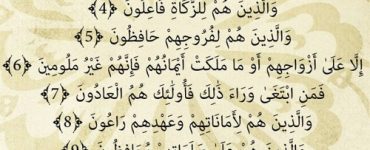 وَالَّذِينَ هُمْ لِلزَّكَاةِ فَاعِلُونَ ﴿4﴾
وَالَّذِينَ هُمْ لِفُرُوجِهِمْ حَافِظُونَ ﴿5﴾
إِلَّا عَلَىٰ أَزْوَاجِهِمْ أَوْ مَا مَلَكَتْ أَيْمَانُهُمْ فَإِنَّهُمْ غَيْرُ مَلُومِينَ ﴿6﴾
فَمَنِ ابْتَغَىٰ وَرَاءَ ذَٰلِكَ فَأُولَٰئِكَ هُمُ الْعَادُونَ ﴿7﴾
وَالَّذِينَ هُمْ لِأَمَانَاتِهِمْ وَعَهْدِهِمْ رَاعُونَ ﴿8﴾
وَالَّذِينَ هُمْ عَلَىٰ صَلَوَاتِهِمْ يُحَافِظُونَ ﴿9﴾